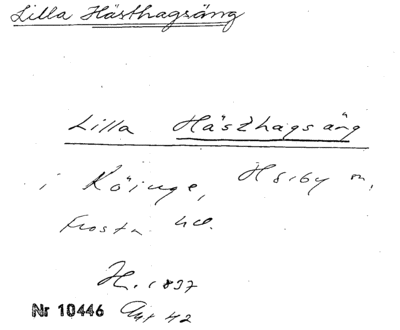 Lilla Hästhagsäng
Lilla Hästhagsäng
i Röinge, Hsiby m,
Frosta hd.
H. 1837
Nr 10446 Akt 42